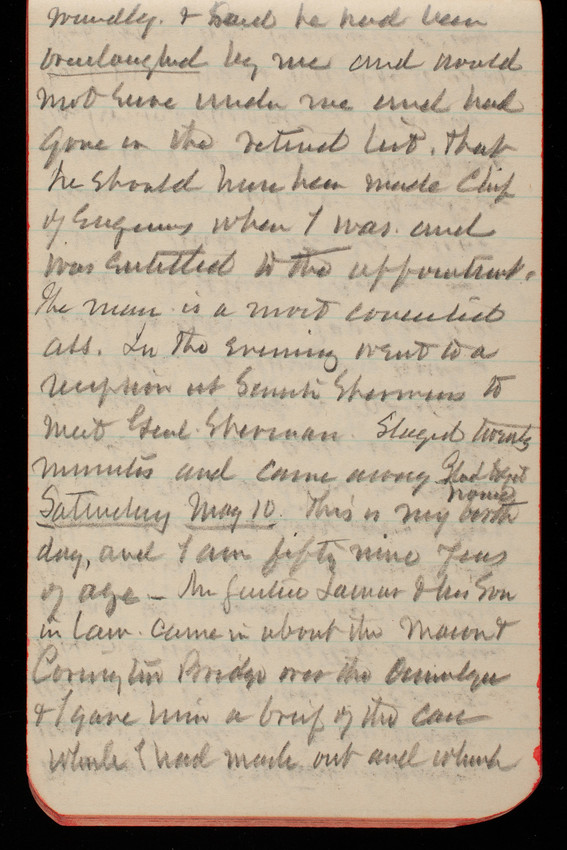 roundly. & said he had been
overslaughed by me and would
not serve under me and had
gone on the retired list. That
he should have been made Chief
of Engineers when I was. and
was entitled to the appointment.
The man is a most conceited
ass. In the evening went to a
reception at Senator Shermans to
meet Genl Sherman. Staged twenty
minutes and came away glad to get
home
Saturday May 10. This is my birth
day, and I am fifty nine years
of age - Mr Justice Lamar & his Son
in Law. came in about the Macon &
Covington Bridge over the Ocmulgee
& I gave him a brief of the case
which I had made out and which